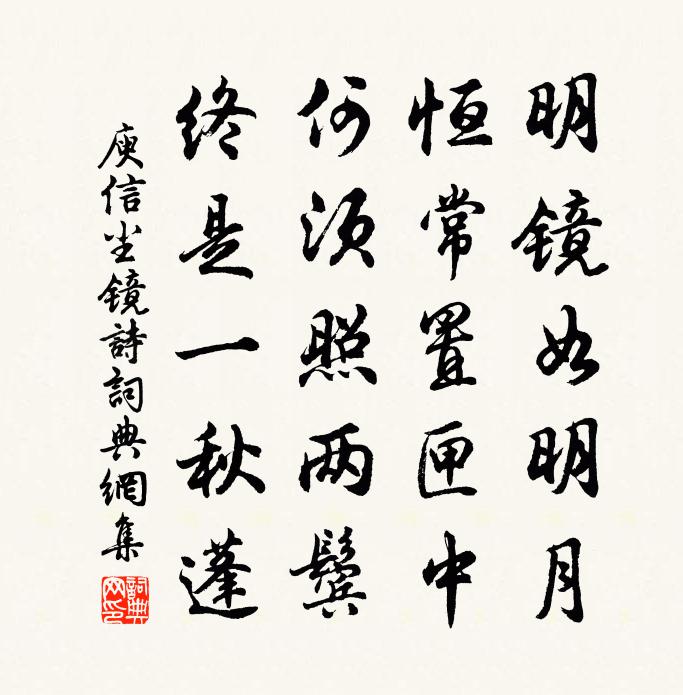 明鏡如明月
恒常置匣中
何須照两鬓
终是一秋蓬
庾信尘鏡詩詞典網集
詞典网印